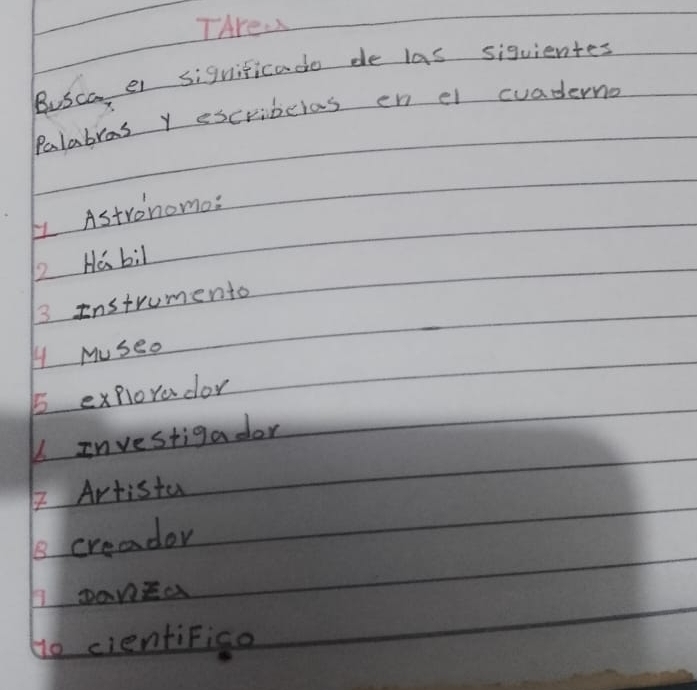 TArea
Busca, el significado de las siguientes
Palabras y escribelas en el cuaderno
1 Astrónomo:
2 Hábil
3 Instrumento
4 Museo
5 explorador
6 Investigador
7 Artista
8 creador
9 Danza
10 cientifico